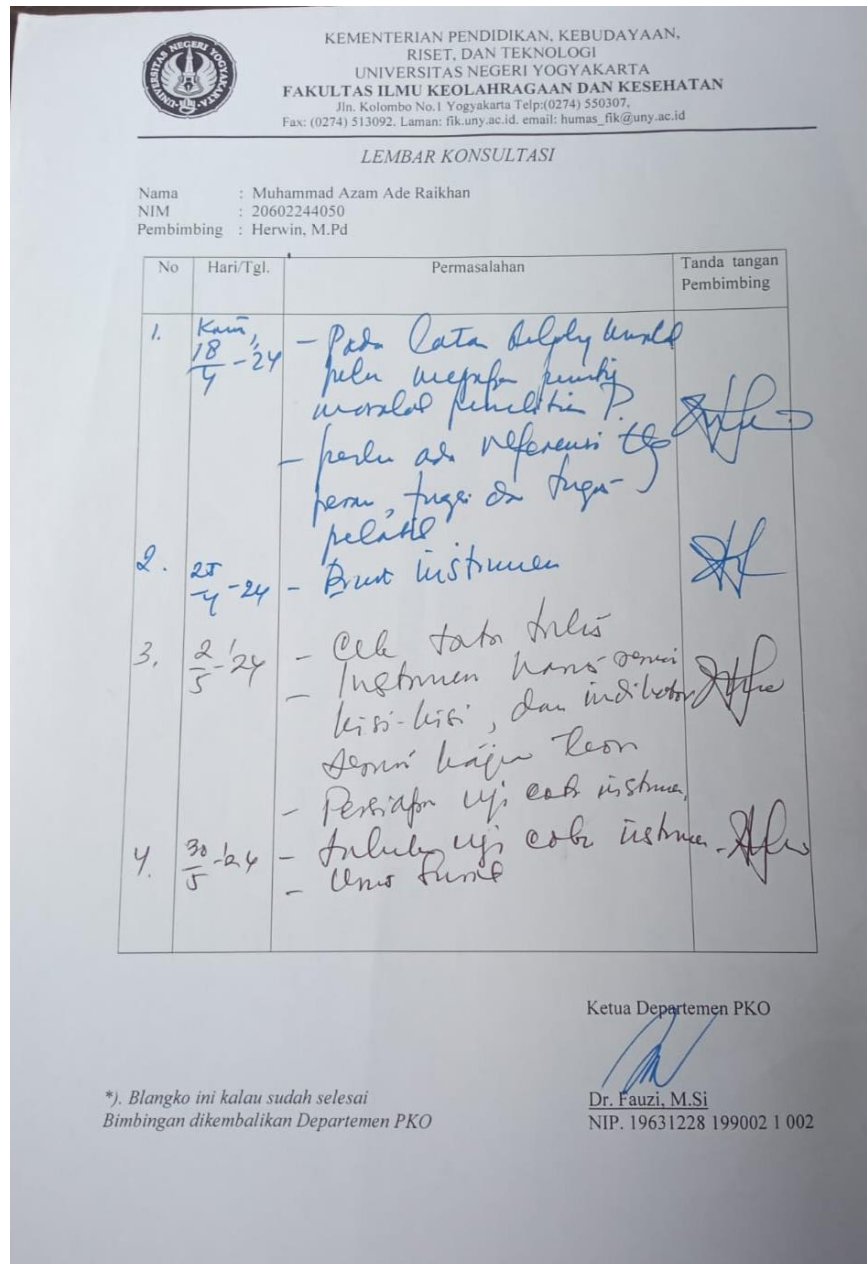 UNIVERSITAS NEGERI YOGYAKARTA
KEMENTERIAN PENDIDIKAN, KEBUDAYAAN,
RISET, DAN TEKNOLOGI
UNIVERSITAS NEGERI YOGYAKARTA
FAKULTAS ILMU KEOLAHRAGAAN DAN KESEHATAN
Jln. Kolombo No.1 Yogyakarta Telp:(0274) 550307,
Fax: (0274) 513092. Laman: fik.uny.ac.id. email: humas_fik@uny.ac.id
LEMBAR KONSULTASI
Nama : Muhammad Azam Ade Raikhan
NIM : 20602244050
Pembimbing : Herwin, M.Pd
No Hari/Tgl. Permasalahan Tanda tangan
Pembimbing
1. Kamis,
18/4 - '24 - Pada latar
perlu
penelitian ?
- perlu ada referensi ttg
peran, tugas dan
pelatih
2. 25/4 - 24 - Buat instrumen
3. 2/5 - '24 - Cek tata tulis
- Instrumen harus sesuai
kisi-kisi, dan indikator
sesuai kajian teori
- Persiapan uji coba instrumen
4. 30/5 - 24 - uji coba instrumen
Ketua Departemen PKO
*). Blangko ini kalau sudah selesai
Bimbingan dikembalikan Departemen PKO
Dr. Fauzi, M.Si
NIP. 19631228 199002 1 002